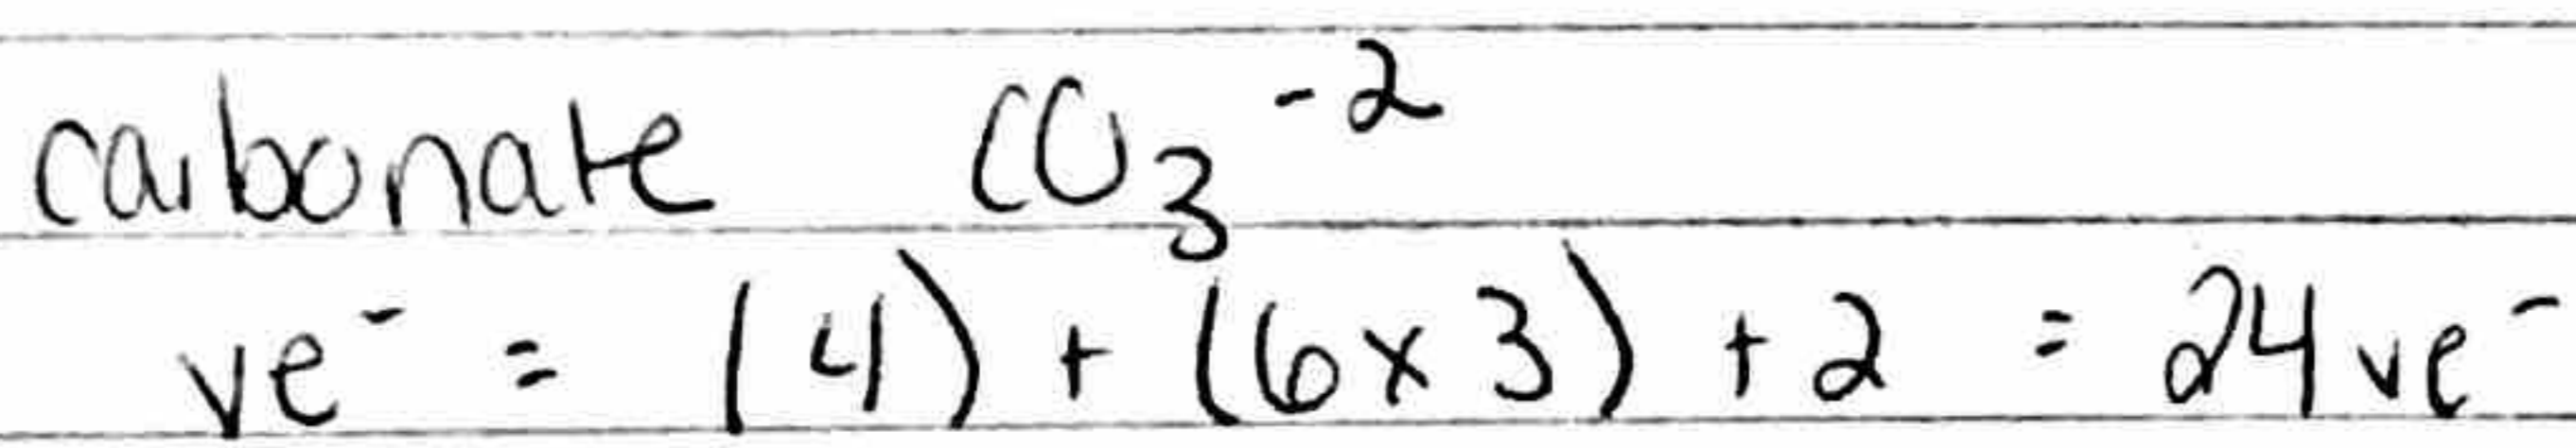 carbonate CO₃⁻²
ve⁻ = (4) + (6x3) + 2 = 24 ve⁻